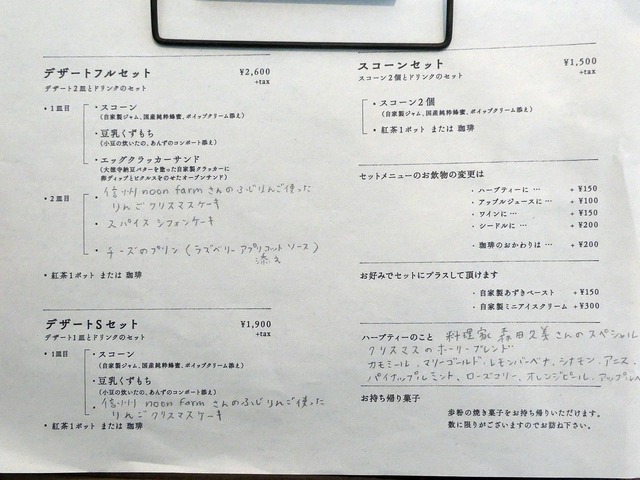 デザートフルセット ¥2,600
デザート2皿とドリンクのセット +tax
・1皿目
・スコーン
(自家製ジャム、国産純粋蜂蜜、ホイップクリーム添え)
・豆乳くずもち
(小豆の炊いたの、あんずのコンポート添え)
・エッグクラッカーサンド
(大徳寺納豆バターを塗った自家製クラッカーに
卵ディップとピクルスをのせたオープンサンド)
・2皿目
・信州 noon farm さんのふじりんご使った
りんごクリスマスケーキ
・スパイスシフォンケーキ
・チーズのプリン (ラズベリーアプリコットソース)
添え
・紅茶1ポット または 珈琲
デザートSセット ¥1,900
デザート1皿とドリンクのセット +tax
・1皿目
・スコーン
(自家製ジャム、国産純粋蜂蜜、ホイップクリーム添え)
・豆乳くずもち
(小豆の炊いたの、あんずのコンポート添え)
・信州 noon farm さんのふじりんご使った
りんごクリスマスケーキ
・紅茶1ポット または 珈琲
スコーンセット ¥1,500
スコーン2個とドリンクのセット +tax
・スコーン2個
(自家製ジャム、国産純粋蜂蜜、ホイップクリーム添え)
・紅茶1ポット または 珈琲
セットメニューのお飲物の変更は
・ハーブティーに … + ¥150
・アップルジュースに … + ¥100
・ワインに … + ¥150
・シードルに … + ¥200
・珈琲のおかわりは … + ¥200
お好みでセットにプラスして頂けます
・自家製あずきペースト + ¥150
・自家製ミニアイスクリーム + ¥300
ハーブティーのこと 料理家 森田久美さんのスペシャル
クリスマスのホーリーブレンド
カモミール、マリーゴールド、レモンバーベナ、シナモン、アニス、
パイナップルミント、ローズマリー、オレンジピール、アップル
お持ち帰り菓子
歩粉の焼き菓子をお持ち帰りいただけます。
数に限りがございますのでお訪ね下さい。